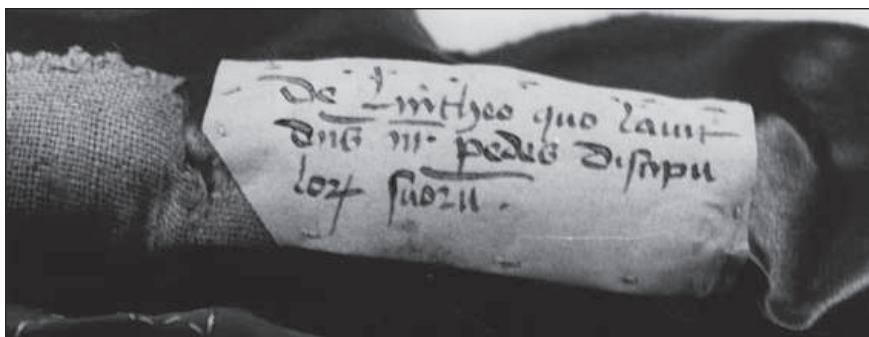 De Lintheo quo lauit
dn̄s nr̄. pedes discipu
loꝝ suorū .